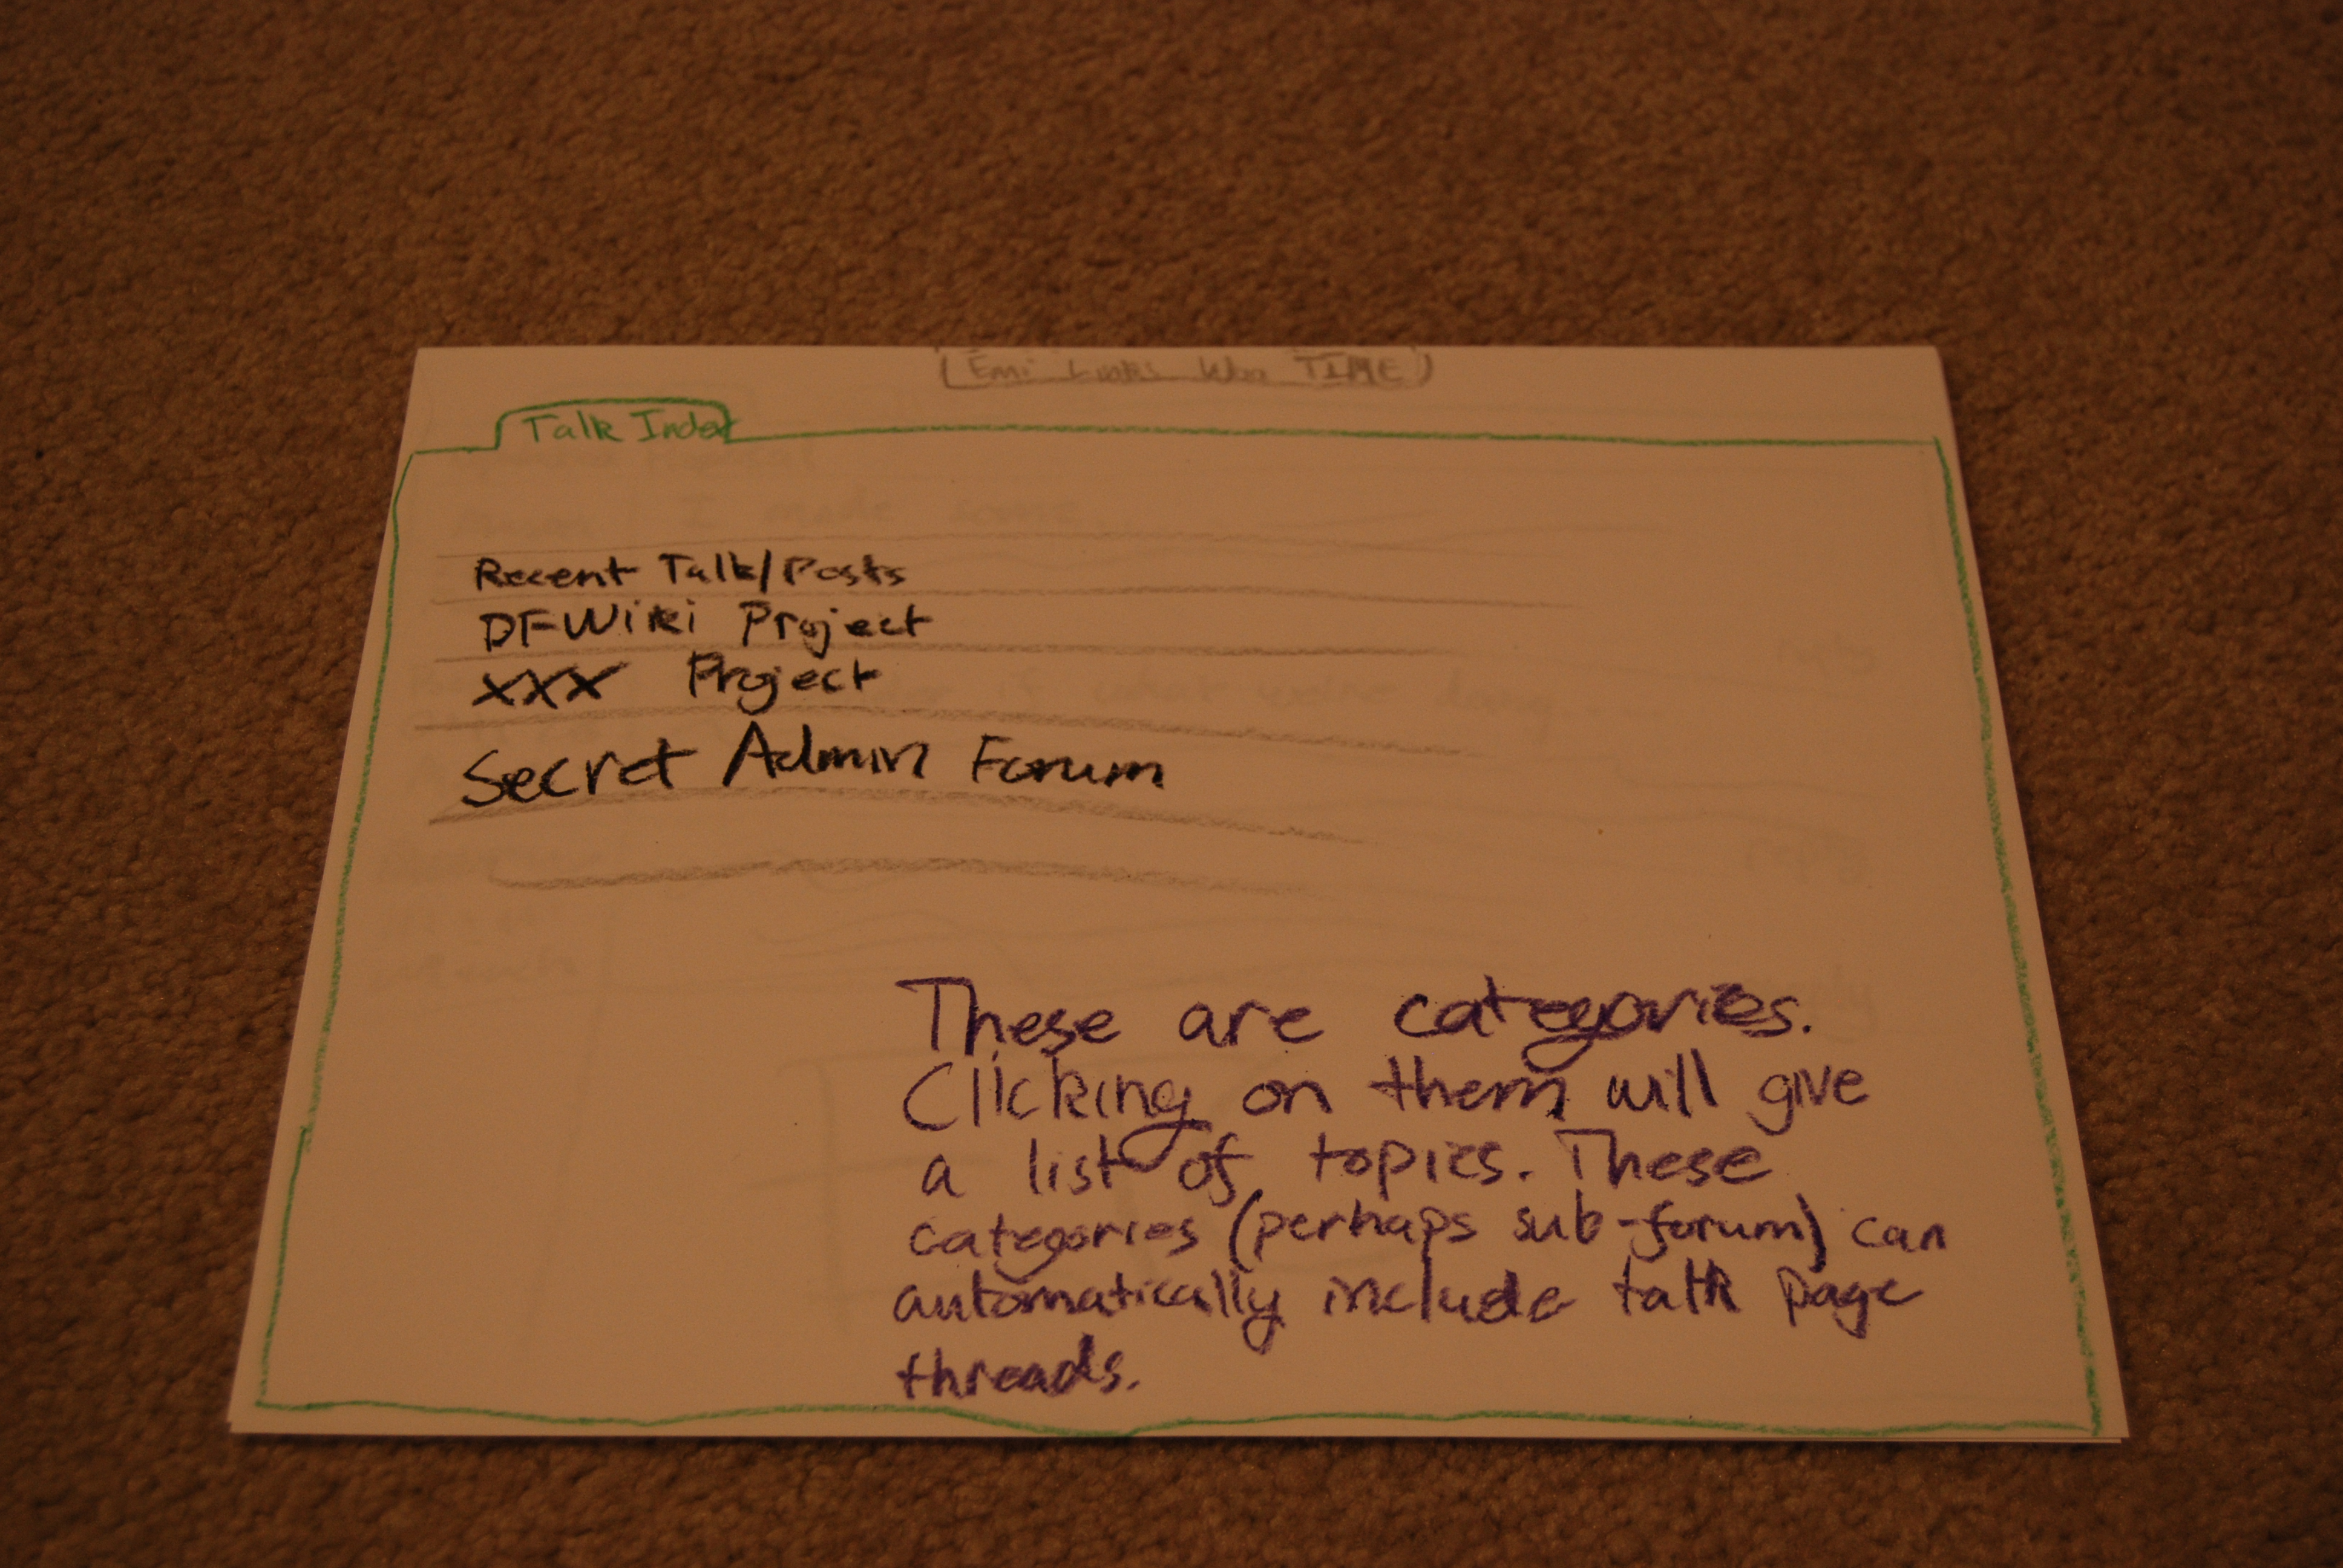 TIME
Talk Index
I made some
Recent Talk/Posts
DFWiki Project
XXX Project
Secret Admin Forum
These are categories.
Clicking on them will give
a list of topics. These
categories (perhaps sub-forum) can
automatically include talk page
threads.